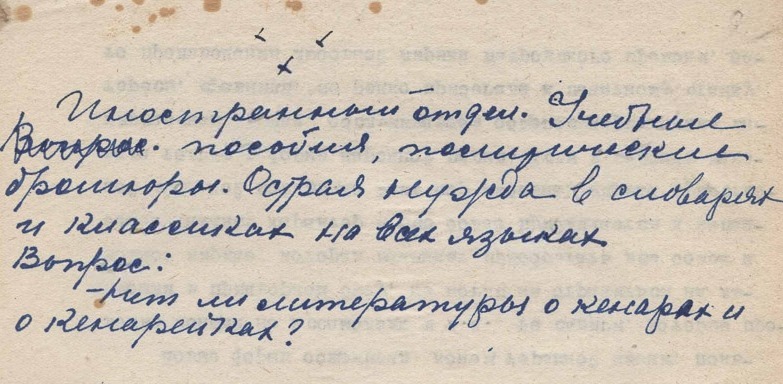 Иностранный отдел. Учебные
Вопрос. пособия, политические
брошюры. Острая нужда в словарях
и классиках на всех языках
Вопрос:
- Нет ли литературы о кенарах и
о кенарейках?